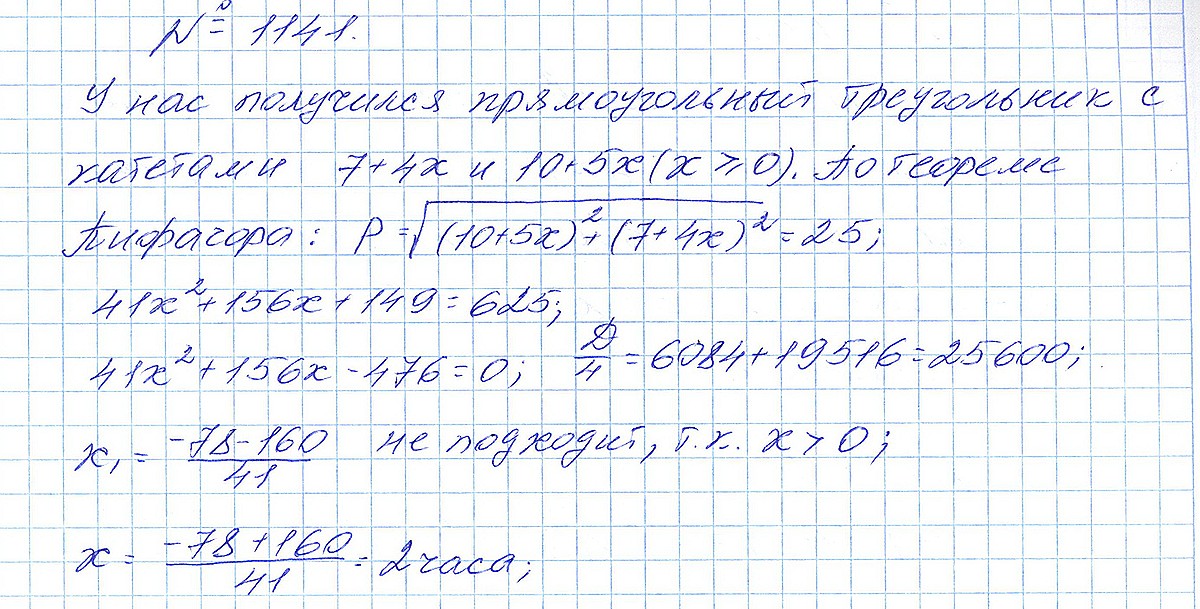 № 1141.
У нас получился прямоугольный треугольник с
катетами 7+4x и 10+5x (x ≥ 0). По теореме
Пифагора: P = √((10+5x)²+(7+4x)²) = 25;
41x²+156x+149=625;
41x²+156x-476=0; D/4 = 6084+19516=25600;
x₁ = (-78-160)/41 не подходит, т.к. x > 0;
x = (-78+160)/41 = 2 часа;